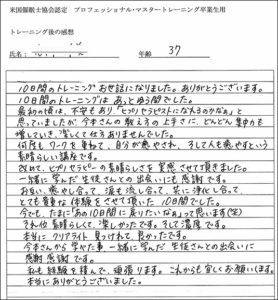 米国催眠士協会認定　プロフェッショナル・マスタートレーニング卒業生用
トレーニング後の感想
氏名：　年齢　37
10日間のトレーニングお世話になりました。ありがとうございます。
10日間のトレーニングは あっとゆう間でした。
最初の頃は、不安もあり「ヒプノセラピストになれるのかなぁ」と
思っていましたが、今本さんの教え方の上手さに、どんどん集中力を
増していき、楽しくて仕方ありませんでした。
何度も、ワークを重ねて、自分が癒やされ、そして人も癒やすという
素晴らしい講座です。
改めて、ヒプノセラピーの素晴らしさを実感させて頂きました。
一緒に学んだ生徒さんとの出会いにも感謝です。
お互い、癒やし合って、涙も流し合って、共に浄化し合って、
とても貴重な体験をさせて頂いた10日間でした。
今でも、たまに「あの10日間に戻りたいなぁ」って思います(笑)
それ位 素晴らしくて、楽しかったです。そして濃厚です。
本当に クリアライト 見つけれて、良かったです。
今本さんから学べた事、一緒に学んだ 生徒さんとの出会いに
感謝 感謝 です。
私も経験を積んで、頑張ります。これからも宜しくお願いします。
本当にありがとうございました。